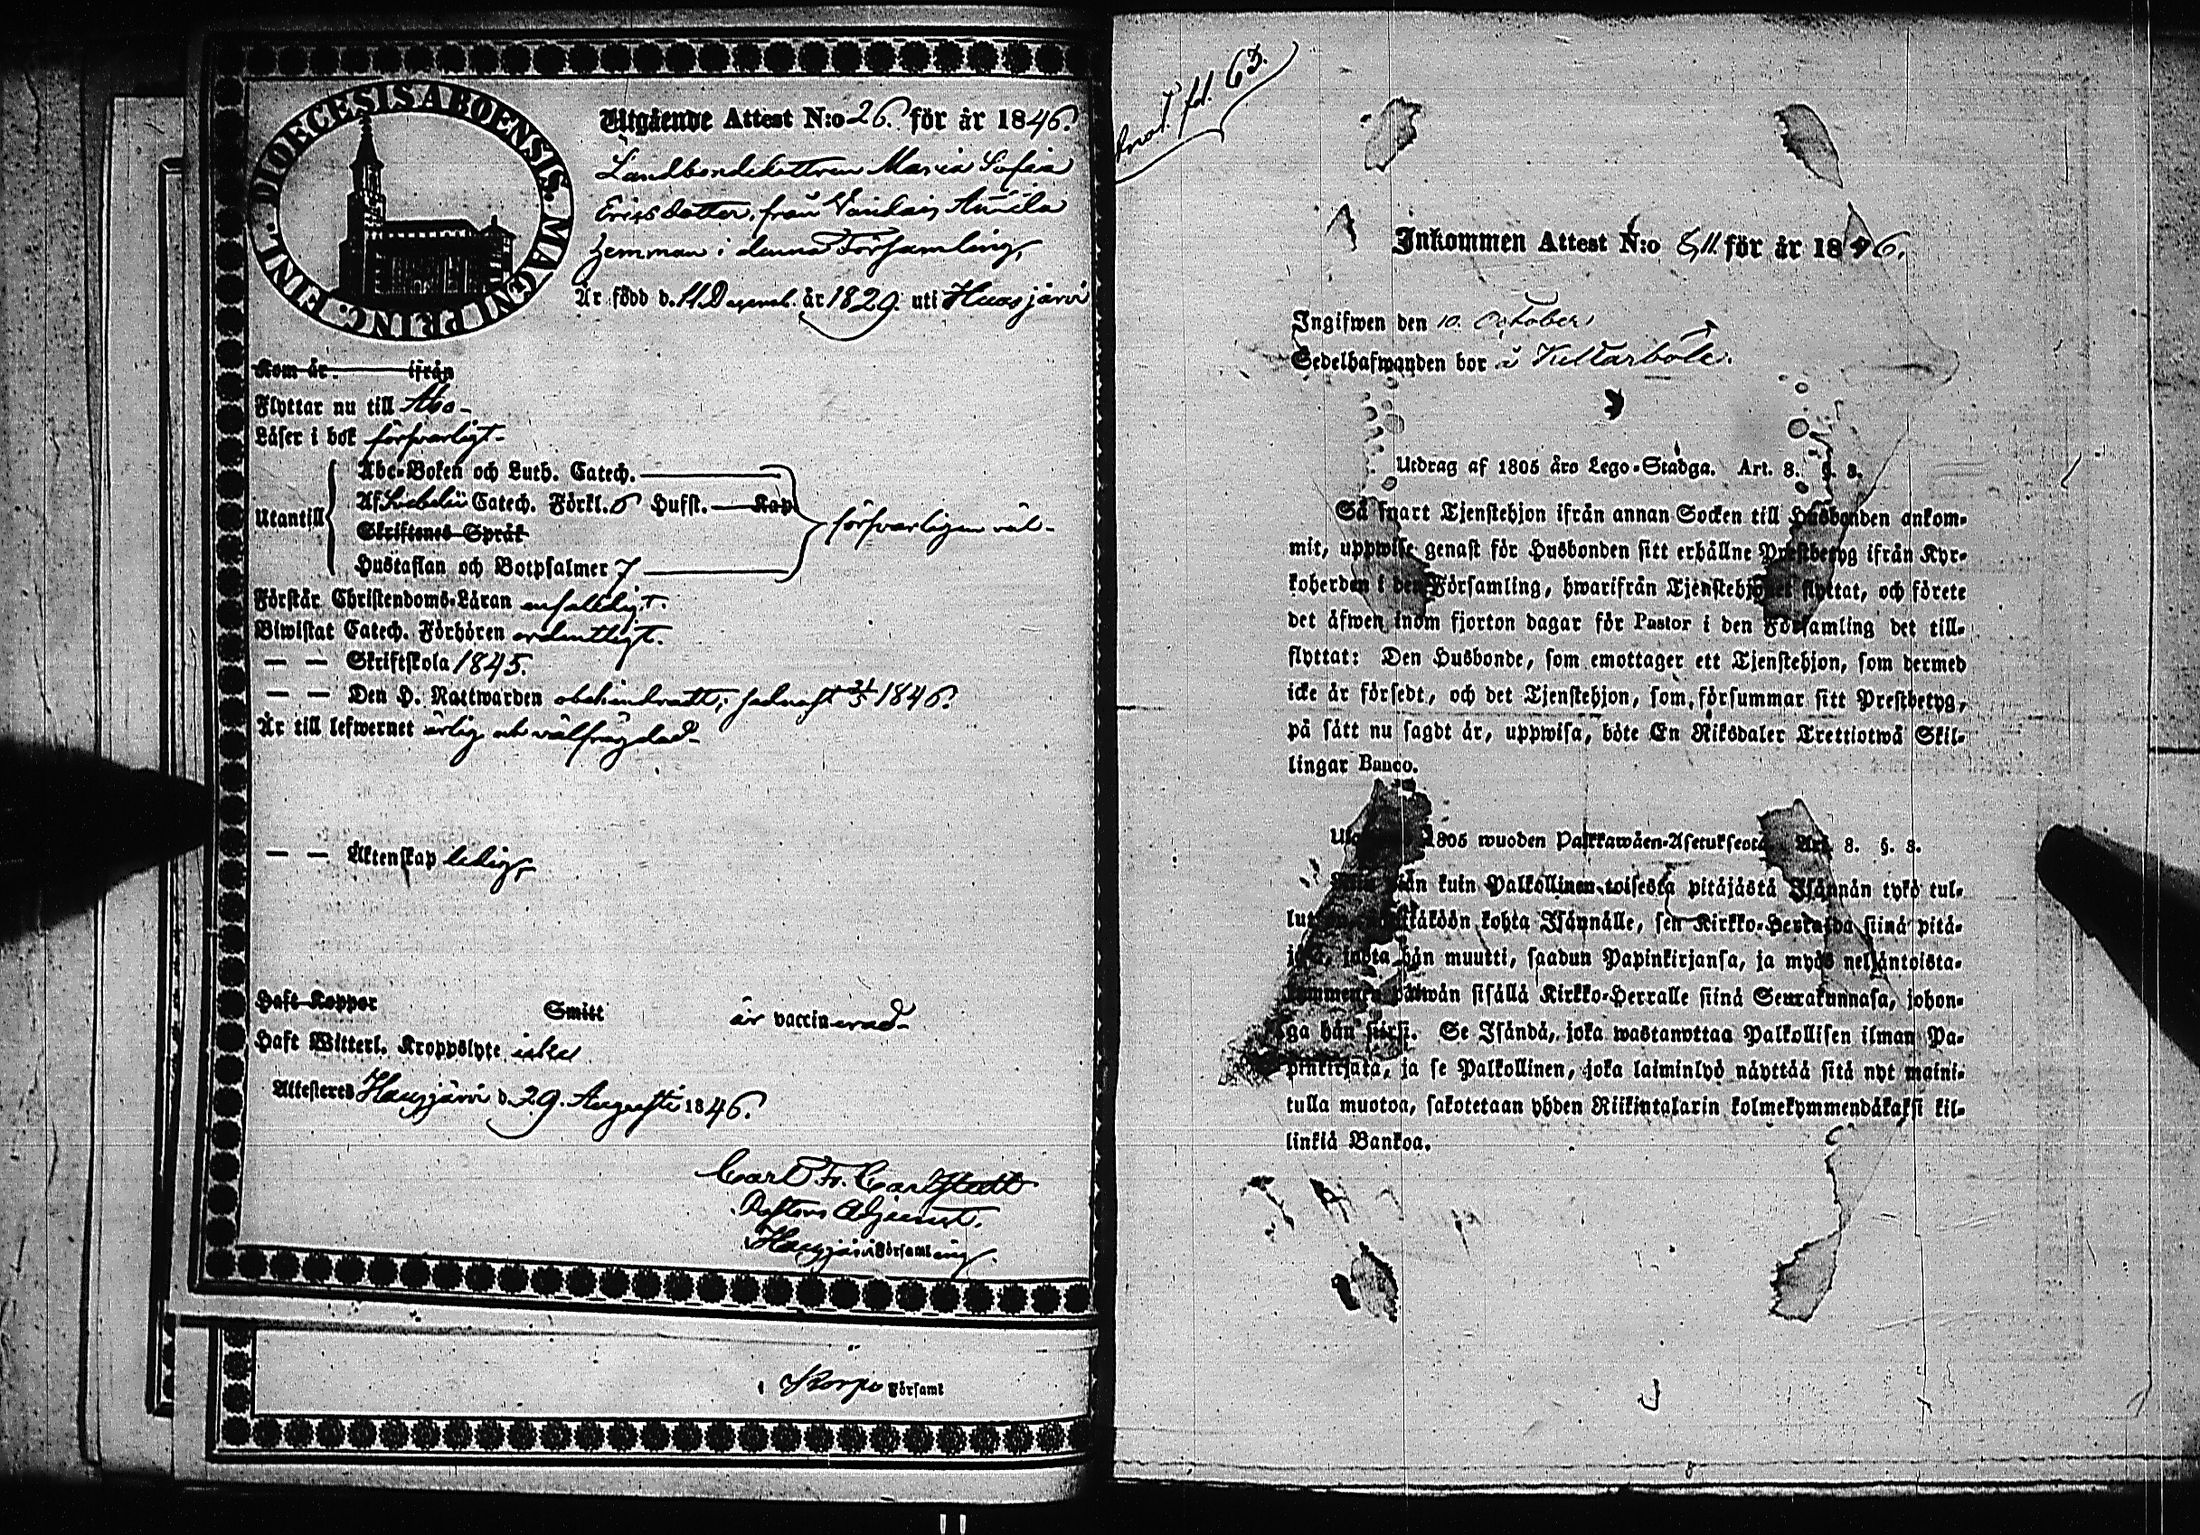 FINL. DIOECESIS ABOENSIS. MAGNI PRINC.
Utgående Attest N:o 26. för år 1846.
Landbondedottren Maria Sofia
Ericsdotter, från Anila
hemman i denna Församling,
Är född d. 11 Decemb. år 1829. uti Hausjärvi
Kom år ifrån
Flyttar nu till Åbo
Läser i bok försvarligt
Abc-Boken och Luth. Catech.
Af Svebelii Catech. Förkl. 6 Hufst. Kap
Utantill
försvarligen väl
Skriftenes Språk
Hustaflan och Botpsalmer 7
Förstår Christendoms-Läran enfaldigt.
Biwistat Catech. Förhören ordentligt.
— — Skriftskola 1845.
— — Den H. Nattwarden obehindradt, sednast 31/5 1846.
Är till lefwernet ärlig och välfrägdad
— — Äktenskap ledig,
Haft Koppor Smitt är vaccinerad
Haft Witterl. Kroppslyte icke
Attesteras Hausjärvi d. 29. Augusti 1846.
Carl Fr. Carlstedt
Pastors Adjunct.
Hausjärvi Församling
i Korpo Församl
Anot. fol. 63.
Inkommen Attest N:o för år 1846.
Ingifwen den 10. October
Sedelhafwanden bor å Kultarböle.
Utdrag af 1805 års Lego-Stadga. Art. 8. §. 8.
Så snart Tjenstehjon ifrån annan Socken till Husbonden ankom-
mit, uppwise genast för Husbonden sitt erhållne Prestbetyg ifrån Kyr-
koherden i den Församling, hwarifrån Tjenstehjonet flyttat, och förete
det äfwen inom fjorton dagar för Pastor i den Församling det till-
flyttat: Den Husbonde, som emottager ett Tjenstehjon, som dermed
icke är försedt, och det Tjenstehjon, som försummar sitt Prestbetyg,
på sätt nu sagdt är, uppwisa, böte En Riksdaler Trettiotwå Skil-
lingar Banco.
1805 wuoden Palkkawäen-Asetuksesta Art. 8. §. 8.
kuin Palkollinen toisesta pitäjästä Isännän tykö tul-
kohta Isännälle, sen Kirkko-Herralda siinä pitä-
hän muutti, saadun Papinkirjansa, ja myös neljäntoista-
kymmenen päiwän sisällä Kirkko-Herralle siinä Seurakunnasa, johon-
ga hän siirsi. Se Isändä, joka wastanottaa Palkollisen ilman Pa-
pinkirjata, ja se Palkollinen, joka laiminlyö näyttää sitä nyt maini-
tulla muotoa, sakotetaan yhden Riikintalarin kolmekymmendäkaksi kil-
linkiä Bankoa.